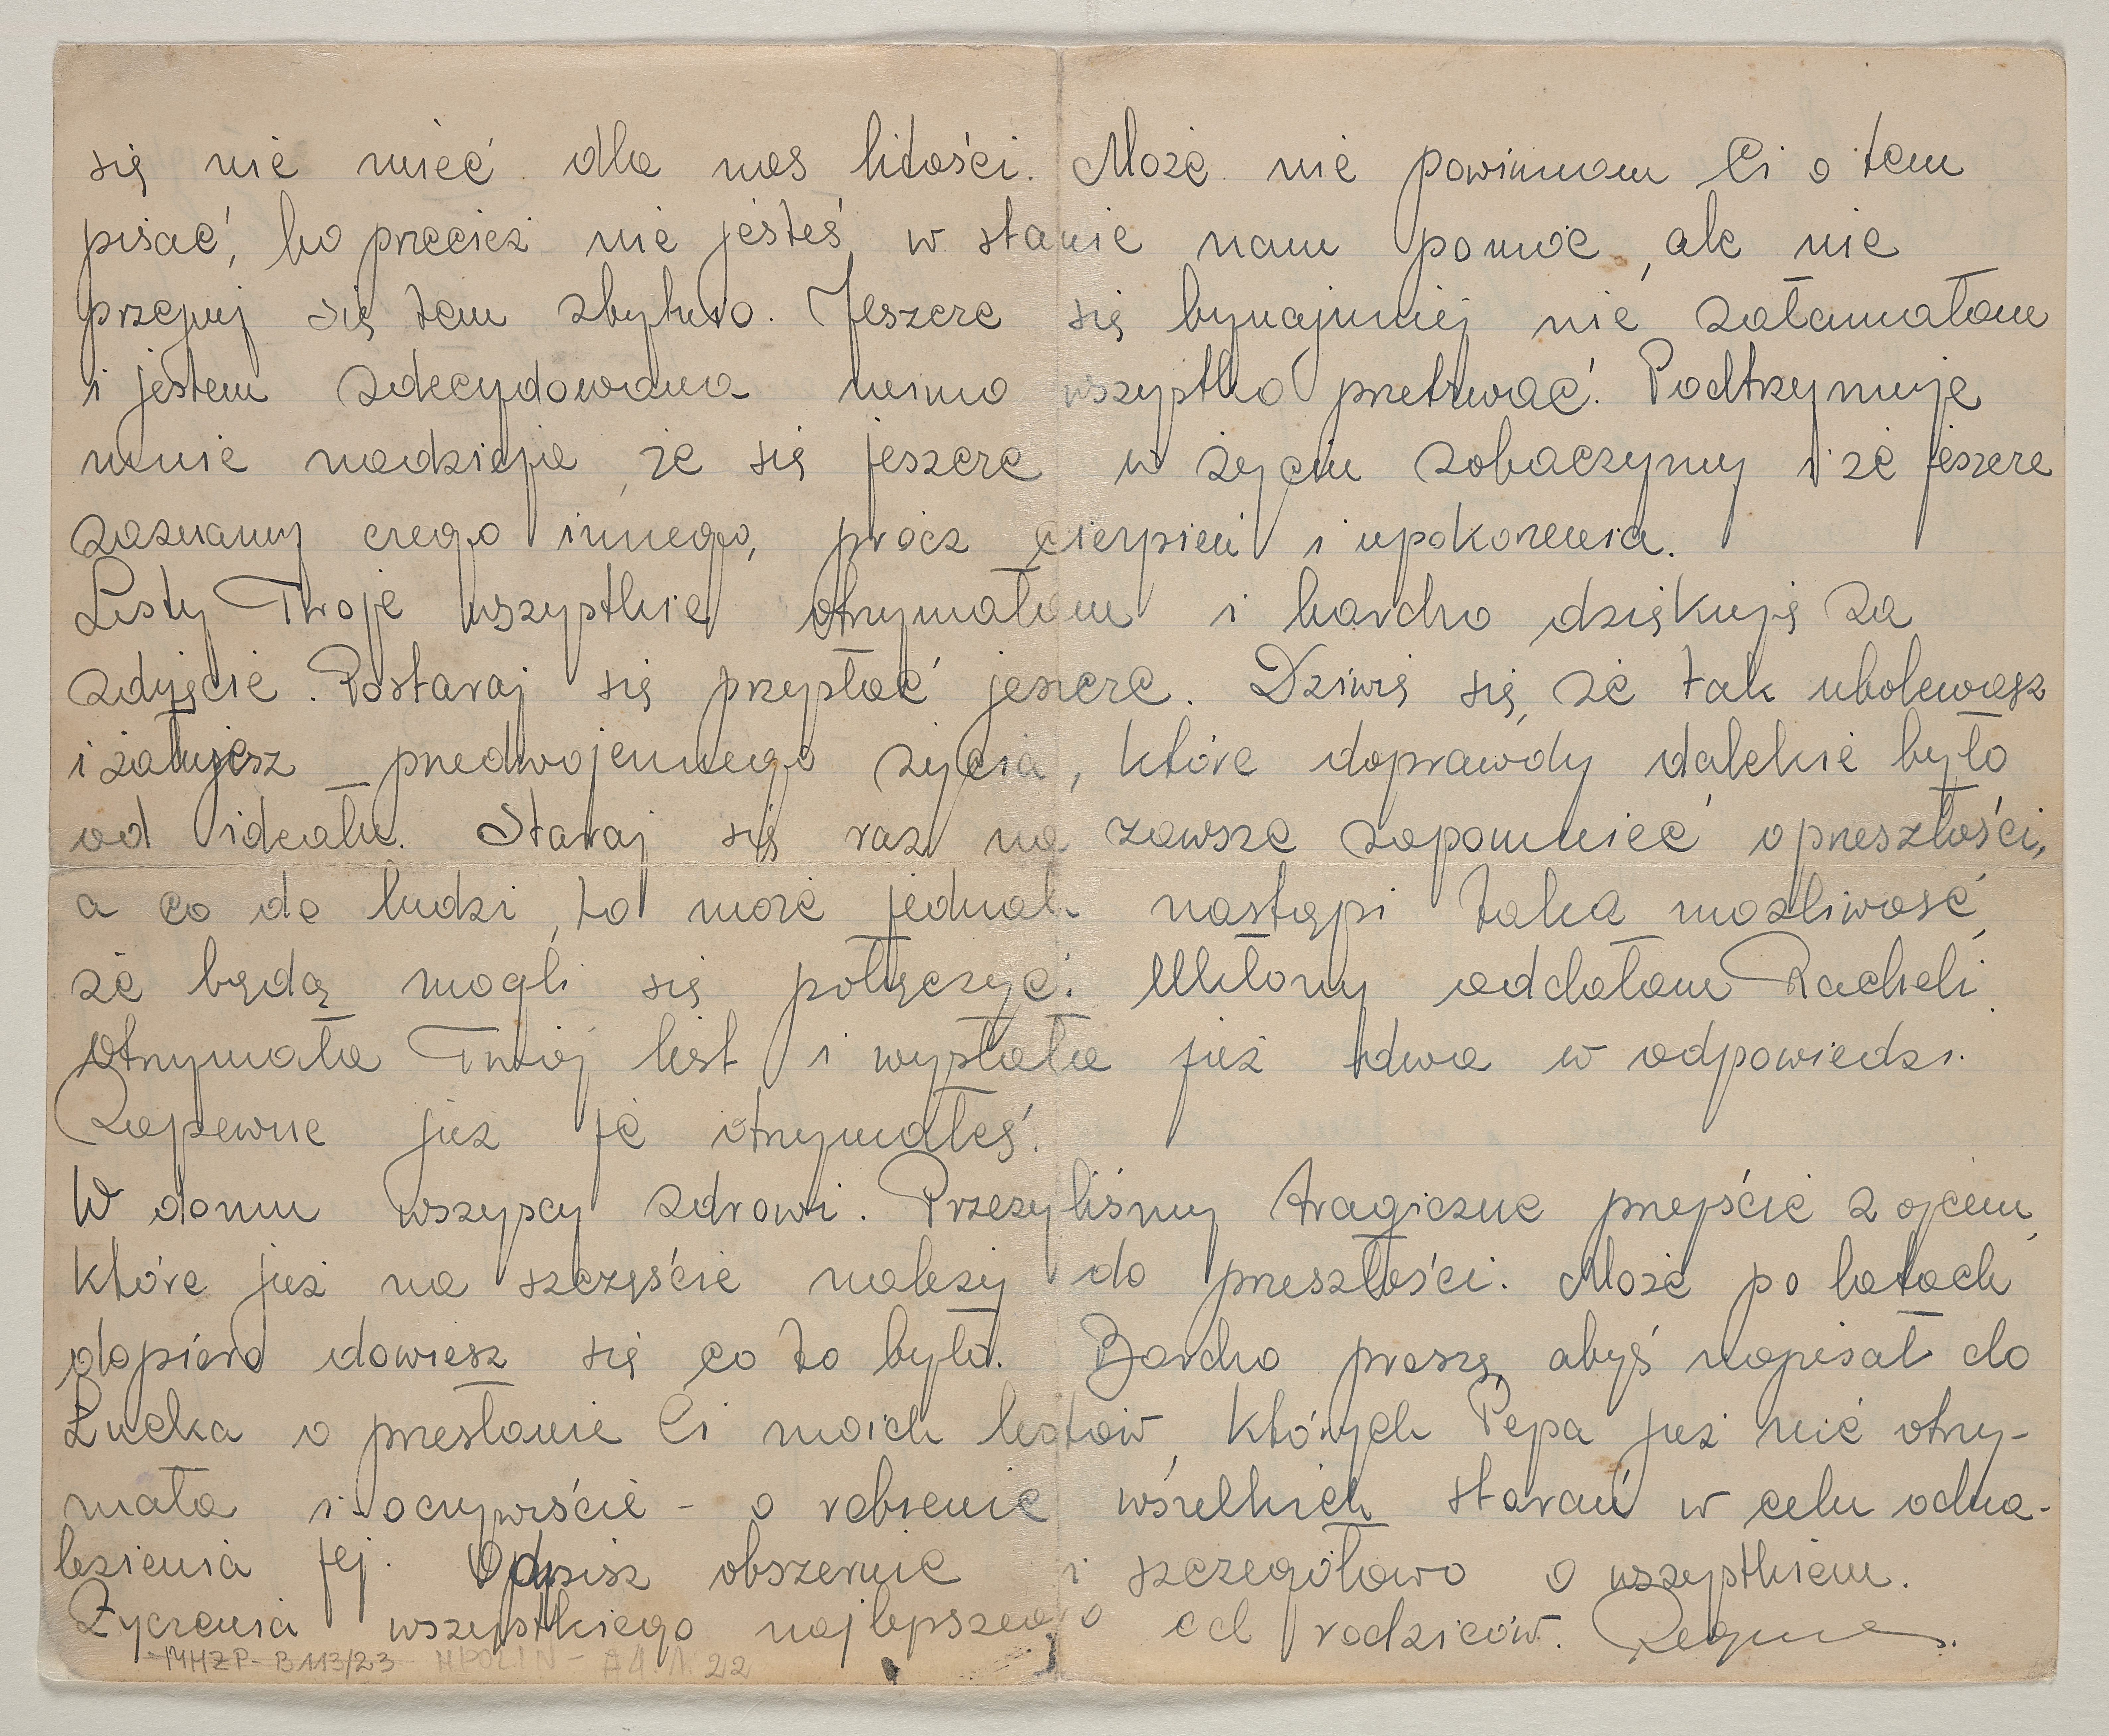 się nie mieć dla nas litości. Może nie powinnam Ci o tem
pisać, bo przecież nie jesteś w stanie nam pomóc, ale nie
przejmuj się tem zbytnio. Jeszcze się bynajmniej nie załamałam
i jestem zdecydowana mimo wszystko przetrwać. Podtrzymuje
mnie nadzieja, że się jeszcze w życiu zobaczymy i że jeszcze
zaznamy czegoś innego, prócz cierpień i upokorzenia.
Listy Twoje wszystkie otrzymałam i bardzo dziękuję za
zdjęcie. Postaraj się przysłać jeszcze. Dziwię się, że tak ubolewasz
i żałujesz przedwojennego życia, które doprawdy dalekie było
od ideału. Staraj się raz na zawsze zapomnieć o przeszłości,
a co do ludzi, to może jednak nastąpi taka możliwość,
że będą mogli się połączyć. Ukłony oddałam Racheli.
Otrzymała Twój list i wysłała już dwa w odpowiedzi.
Zapewne już je otrzymałeś.
W domu wszyscy zdrowi. Przeżyliśmy tragiczne przejście z ojcem,
które już na szczęście należy do przeszłości. Może po latach
dopiero dowiesz się co to było. Bardzo proszę, abyś napisał do
Łucka o przesłanie Ci moich listów, których Pepa już nie otrzy-
mała i oczywiście - o robienie wszelkich starań w celu odna-
lezienia jej. Odpisz obszernie i szczegółowo o wszystkiem.
Życzenia wszystkiego najlepszego od rodziców. Regina.
MHŻP-B113/23 MPOLIN-A4.1.22